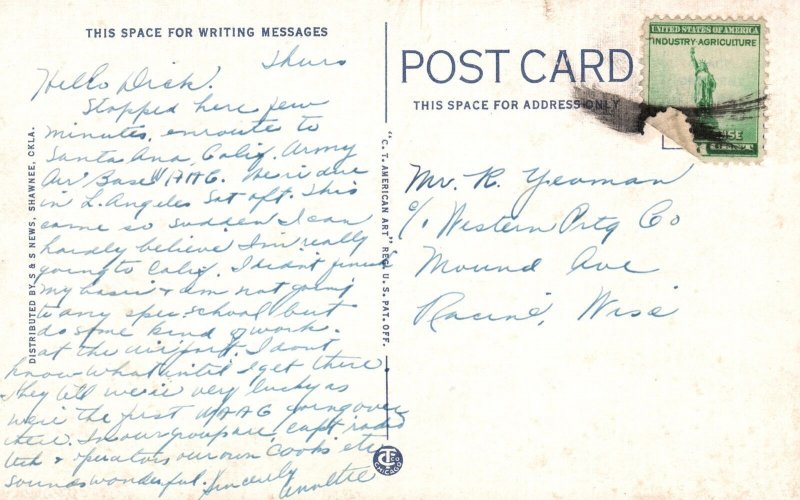 THIS SPACE FOR WRITING MESSAGES
Thurs
Hello Dick!
Stopped here few
minutes, enroute to
Santa Ana, Calif. Army
Air Base WAAC. We're due
in L. Angeles Sat aft. This
came so sudden I can
hardly believe I'm really
going to Calif. I didn't finish
my basic & am not going
to any spec school but
do some kind of work
at the airport. I don't
know what until I get there.
They tell we're very lucky as
we're the first WAAC going over
there. In our group are, radio
tech & operators our own cooks etc
sounds wonderful. Sincerely
DISTRIBUTED BY S & S NEWS, SHAWNEE, OKLA.
"C. T. AMERICAN ART" REG. U. S. PAT. OFF.
CHICAGO
POST CARD
THIS SPACE FOR ADDRESS ONLY
UNITED STATES OF AMERICA
INDUSTRY·AGRICULTURE
Mr. R. Yeoman
c/o Western Prtg Co
Mound Ave
Racine, Wisc